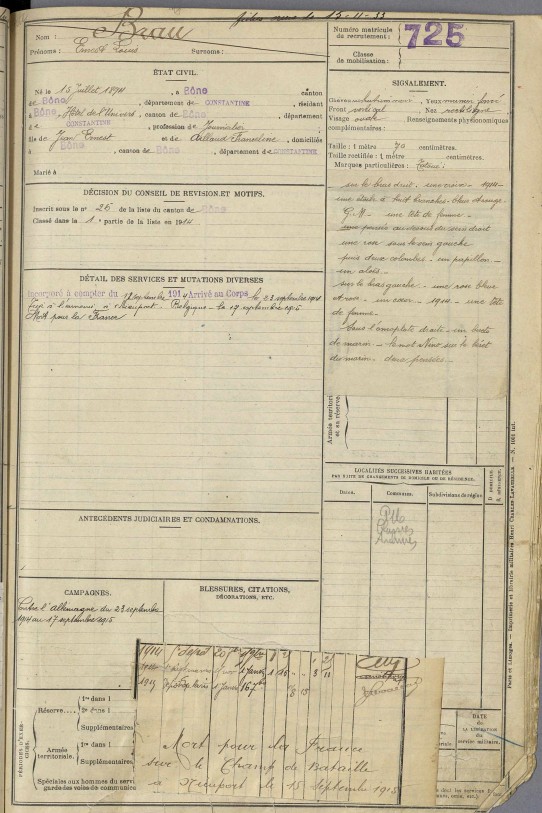 fiches revu le 15-11-33
Nom : Brau
Prénoms : Ernest Louis Surnoms :
Numéro matricule de recrutement : 725
Classe de mobilisation :
ÉTAT CIVIL.
Né le 15 Juillet 1894, à Bône canton
de Bône, département de CONSTANTINE, résidant
à Bône, Hôtel de l'Univers, canton de Bône, département
d CONSTANTINE, profession de Journalier
fils de Jean Ernest et de Francoline, domiciliés
à Bône, canton de Bône, département de CONSTANTINE
Marié à
DÉCISION DU CONSEIL DE REVISION ET MOTIFS.
Inscrit sous le n° 25 de la liste du canton de Bône
Classé dans la 1e partie de la liste en 1914
DÉTAIL DES SERVICES ET MUTATIONS DIVERSES
Incorporé à compter du septembre 1914 Arrivé au Corps le 23 septembre 1914
à l'ennemi à Nieuport Belgique le 17 septembre 1915
Mort pour la France
ANTÉCÉDENTS JUDICIAIRES ET CONDAMNATIONS.
CAMPAGNES.
Contre l'Allemagne du 23 septembre
1914 au 17 septembre 1915
BLESSURES, CITATIONS,
DÉCORATIONS, ETC.
SIGNALEMENT.
Cheveux , Yeux
Front vertical Nez rectiligne
Visage ovale Renseignements physionomiques
complémentaires :
Taille : 1 mètre 70 centimètres.
Taille rectifiée : 1 mètre centimètres.
Marques particulières : Tatoué :
sur le bras droit, une croix 1914 -
une étoile à huit branches -
G.M - une tête de femme -
une pensée au dessus du sein droit
une rose sous le sein gauche
puis deux colombes - un papillon -
sur le bras gauche - une rose bleue
un cœur - 1910 - une tête
de femme -
Sous l'omoplate droite - un buste
de marin - le mot Nino sur le béret
du marin - deux pensées -
Armée territori
et sa réserve
LOCALITÉS SUCCESSIVES HABITÉES
PAR SUITE DE CHANGEMENTS DE DOMICILE OU DE RÉSIDENCE.
Dates. Communes. Subdivisions de région
D domicile. R résidence.
Paris et Limoges. — Imprimerie et librairie militaires Henri CHARLES-LAVAUZELLE
PÉRIODES D'EXERCICES.
Réserve
1re dans l
2e dans l
Supplémentaires
Armée territoriale.
1re dans l
Supplémentaires
Spéciales aux hommes du servi
garde des voies de communica
1914
1915 1 janv 167
Mort pour la France
sur le Champ de Bataille
à Nieuport le 15 Septembre 1915
DATE
de
LA LIBÉRATION
du
service militaire.